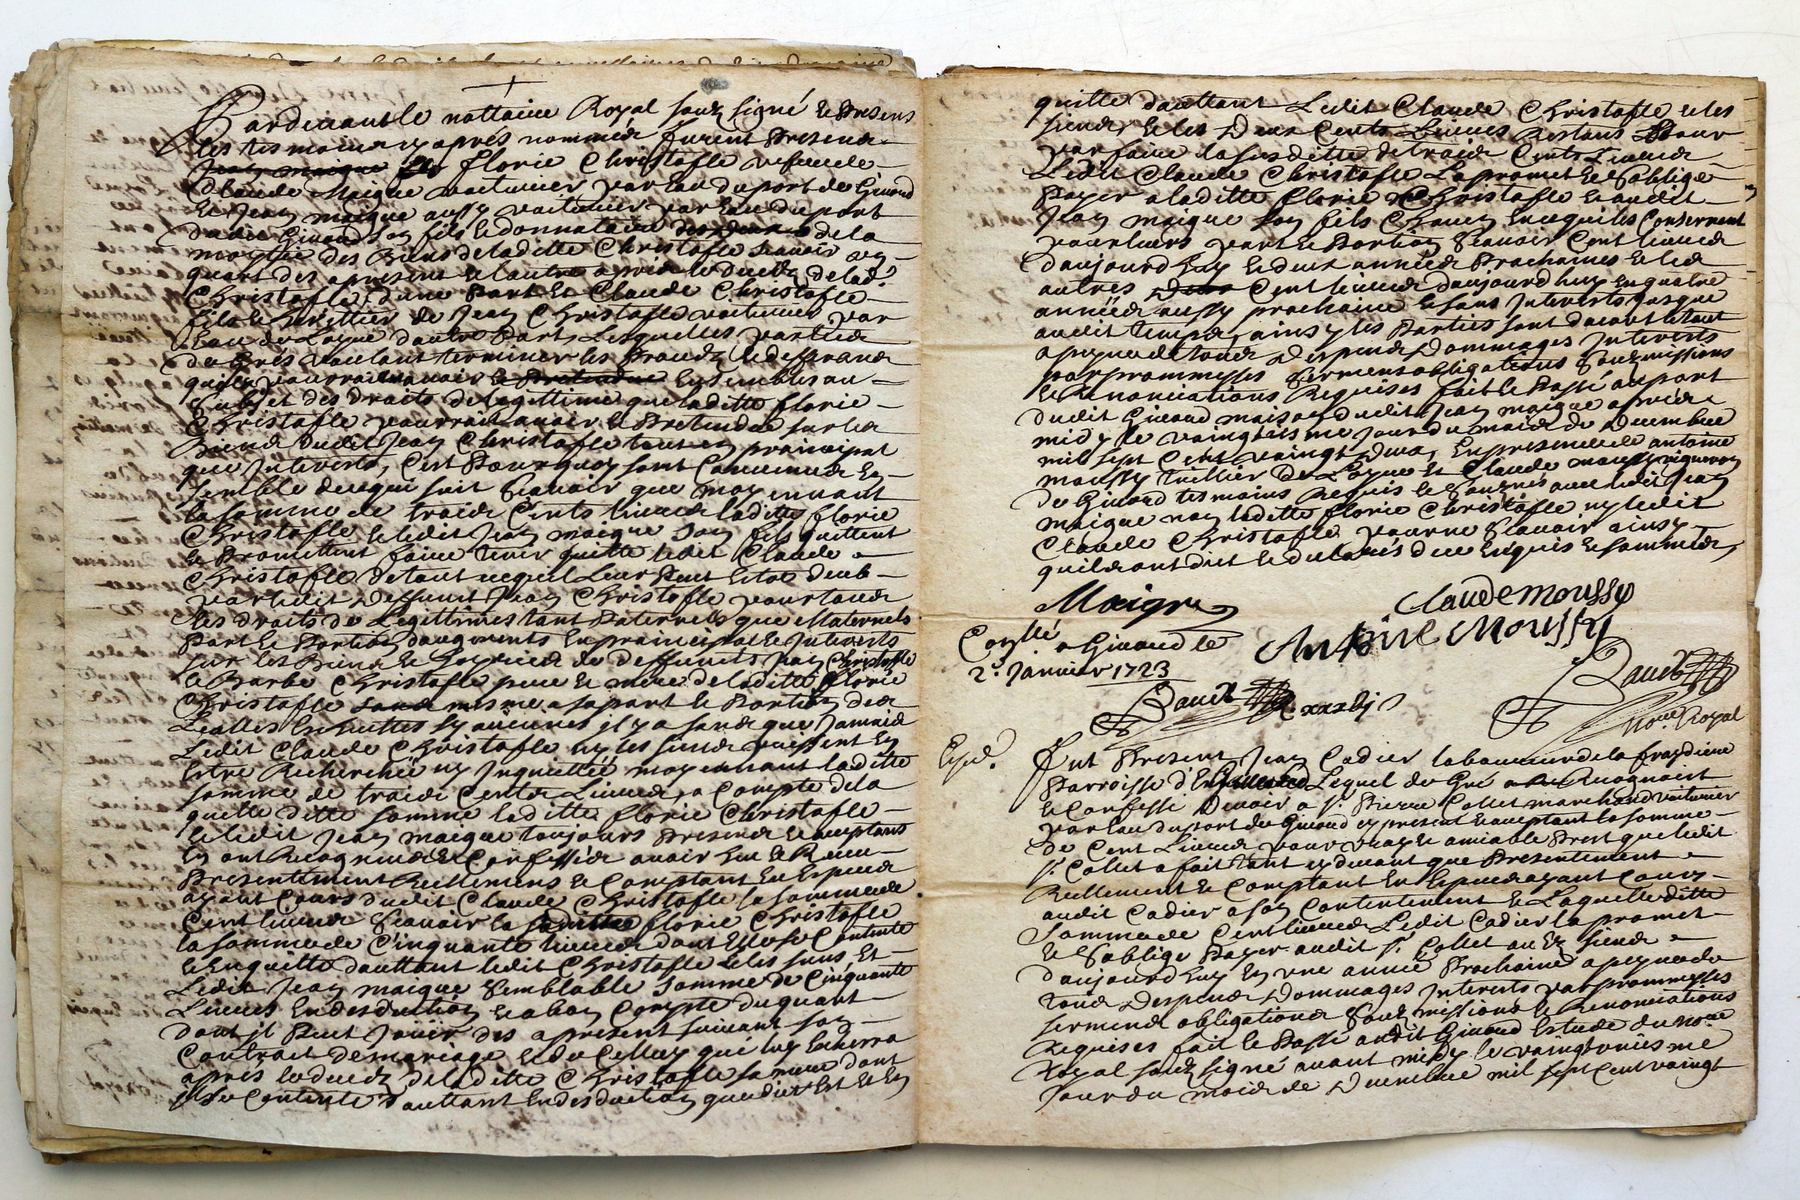 Pardevant le nottaire Royal souz signé & presens
les tesmoins cy aprés nommés furent presens
Florie Christofle vefve de
Claude Maigne voiturier par eau du port de Givord
& Jean maigne aussy voiturier par eau du port
dudit Givord son fils & donnataire de la
moytié des Biens de laditte Christofle scavoir un
quart des apresent & l'autre apres le deces de lad.
Christofle d'une part & Claude Christofle
fils & heritier de Jean Christofle voiturier par
eau de Loyre d'autre part, Lesquelles parties
de gré voulant terminer les proces & differans
qu'ils pourroient avoir Ensembles au
Subjet des droits de legittime que laditte Florie
Christofle pourroit avoir & pretendre sur les
Biens dudit Jean Christofle tout en principal
que Interests, C'est pourquoy sont Convenues En
semble de ce qui suit Scavoir que moyennant
la somme de trois Cents livres laditte Florie
Christofle & ledit Jean maigne son fils quittent
& promettent faire tenir quitte ledit Claude
Christofle de tout ce qu'il leur peut Estre deub
par ledit deffunt Jean Christofle pour tous
les droits de Legittimes tant Paternels que Maternels
part & portion d'augments En principal & Interests
sur les Biens & hoyries de deffunts Jean Christofle
& Barbe Christofle pere & mere de laditte Florie
Christofle mesme sa part & portion des
dalles Escheuttes sy aucunes il y a sans que Jamais
Ledit Claude Christofle ny les siens puissent En
Estre Recherchés ny Inquiettés moyennant laditte
somme de trois Cents Livres, a Compte de la
quelle ditte somme laditte Florie Christofle
& ledit Jean maigne toujours presens & acceptans
En ont Recognus & Confessés avoir Eu & Receu
presentement Reellement & Comptant En Especes
ayant Cours dudit Claude Christofle la somme de
Cent livres Scavoir laditte Florie Christofle
la somme de Cinquante livres dont Elle se Contente
& En quitte d'autant ledit Christofle & les siens, Et
Ledit Jean maigne semblable somme de Cinquante
Livres En desduction & a bon Compte du quart
dont il peut Jouir des apresent suivant son
Contrait de mariage & de Celluy qui luy Echerra
apres le deces de laditte Christofle sa mere dont
il se Contente d'autant En desduction que dit Est & En
quitte d'autant Ledit Claude Christofle & les
siens, & les deux Cents Livres Restans pour
parfaire la susditte de trois Cents Livres
Ledit Claude Christofle La promet & s'oblige
payer a laditte Florie Christofle & audit
Jean maigne son fils Chacun En ce qui les Consernent
pour leurs part & portion Scavoir Cent livres
d'aujourd'huy En deux années prochaines & les
autres Cent livres d'aujourd'huy En quatre
années aussy prochaine & sans Interests Jusque
audit temps, ainsy les parties sont d'acort & tout
a peyne de tous despens dommages Interests
par prommesses serment obligations Soumissions
& Renonciations Requises fait & passé au port
dudit Givord maison dudit Jean maigne apres
midy le vaingtiesme jour du mois de decembre
mil sept Cent vaingt deux, En presence de Antoine
moussy de Loyre & Claude moussy vigneron
de Givord tesmoins Requis & Soussignés avec ledit Jean
maigne non laditte Florie Christofle ny ledit
Claude Christofle pour ne Scavoir ainsy
qu'ils ont dit & declarés de ce Enquis & sommés
Maigne Claude moussy
Antoine Moussy
Conllé a Givord le
2e. Janvier 1723
Baudt
Baudt
nore. Royal
Exp.
Fut present Jean Cadier laboureur de la
parroisse d' Lequel de Gré a Recognoist
& Confesse devoir a Sr. Pierre Collet marchand voiturier
par Eau du port de Givord cy present & acceptant la somme
de Cent Livres pour vray & amiable prest que ledit
Sr. Collet a fait tant cy devant que presentement
Reellement & Comptant En Especes ayant Cours
audit Cadier a son Contentement & Laquelle ditte
Somme de Cent livres Ledit Cadier la promet
& s'oblige payer audit Sr. Collet ou Es siens
d'aujourd'huy En une année prochaine a peyne de
tous despens dommages Interests par prommesses
serments obligations Soumissions & Renonciations
Requises fait & passé audit Givord Estude du Nore.
Royal souz signé avant midy le vaingt uniesme
jour du mois de decembre mil sept Cent vaingt